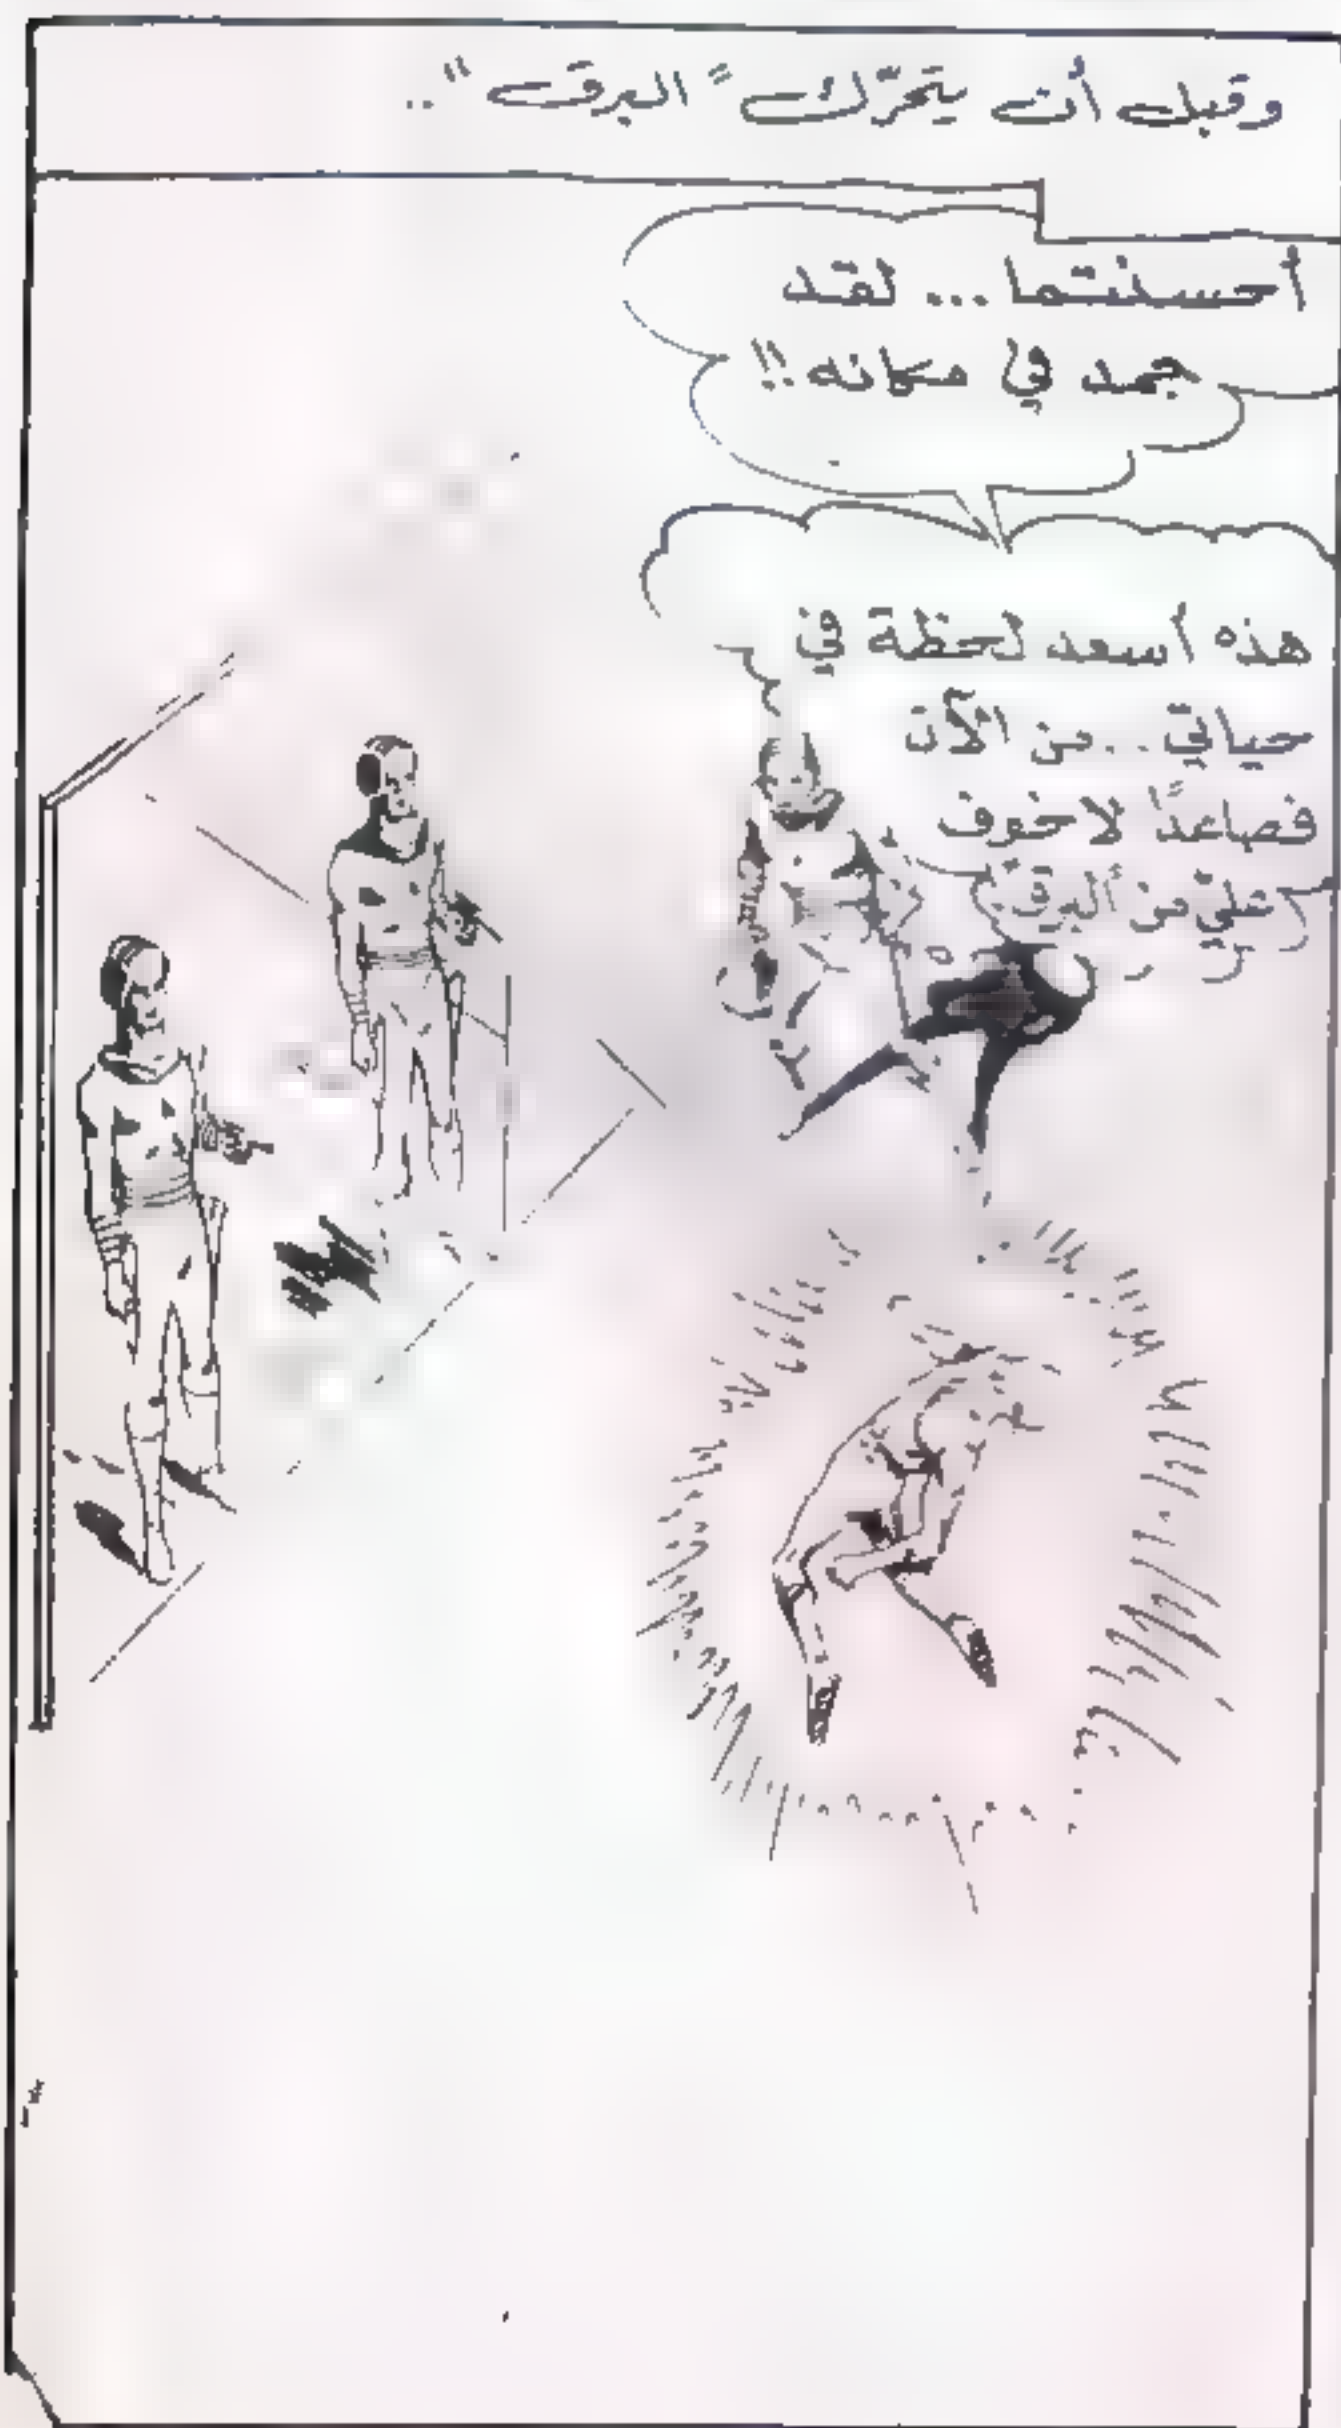 وقبل أن يتحرّك "البرق"..
أحسنتما... لقد
جمد في مكانه!!
هذه أسعد لحظة في
حياتي.. من الآن
فصاعدًا لا خوف
عليّ من "البرق"